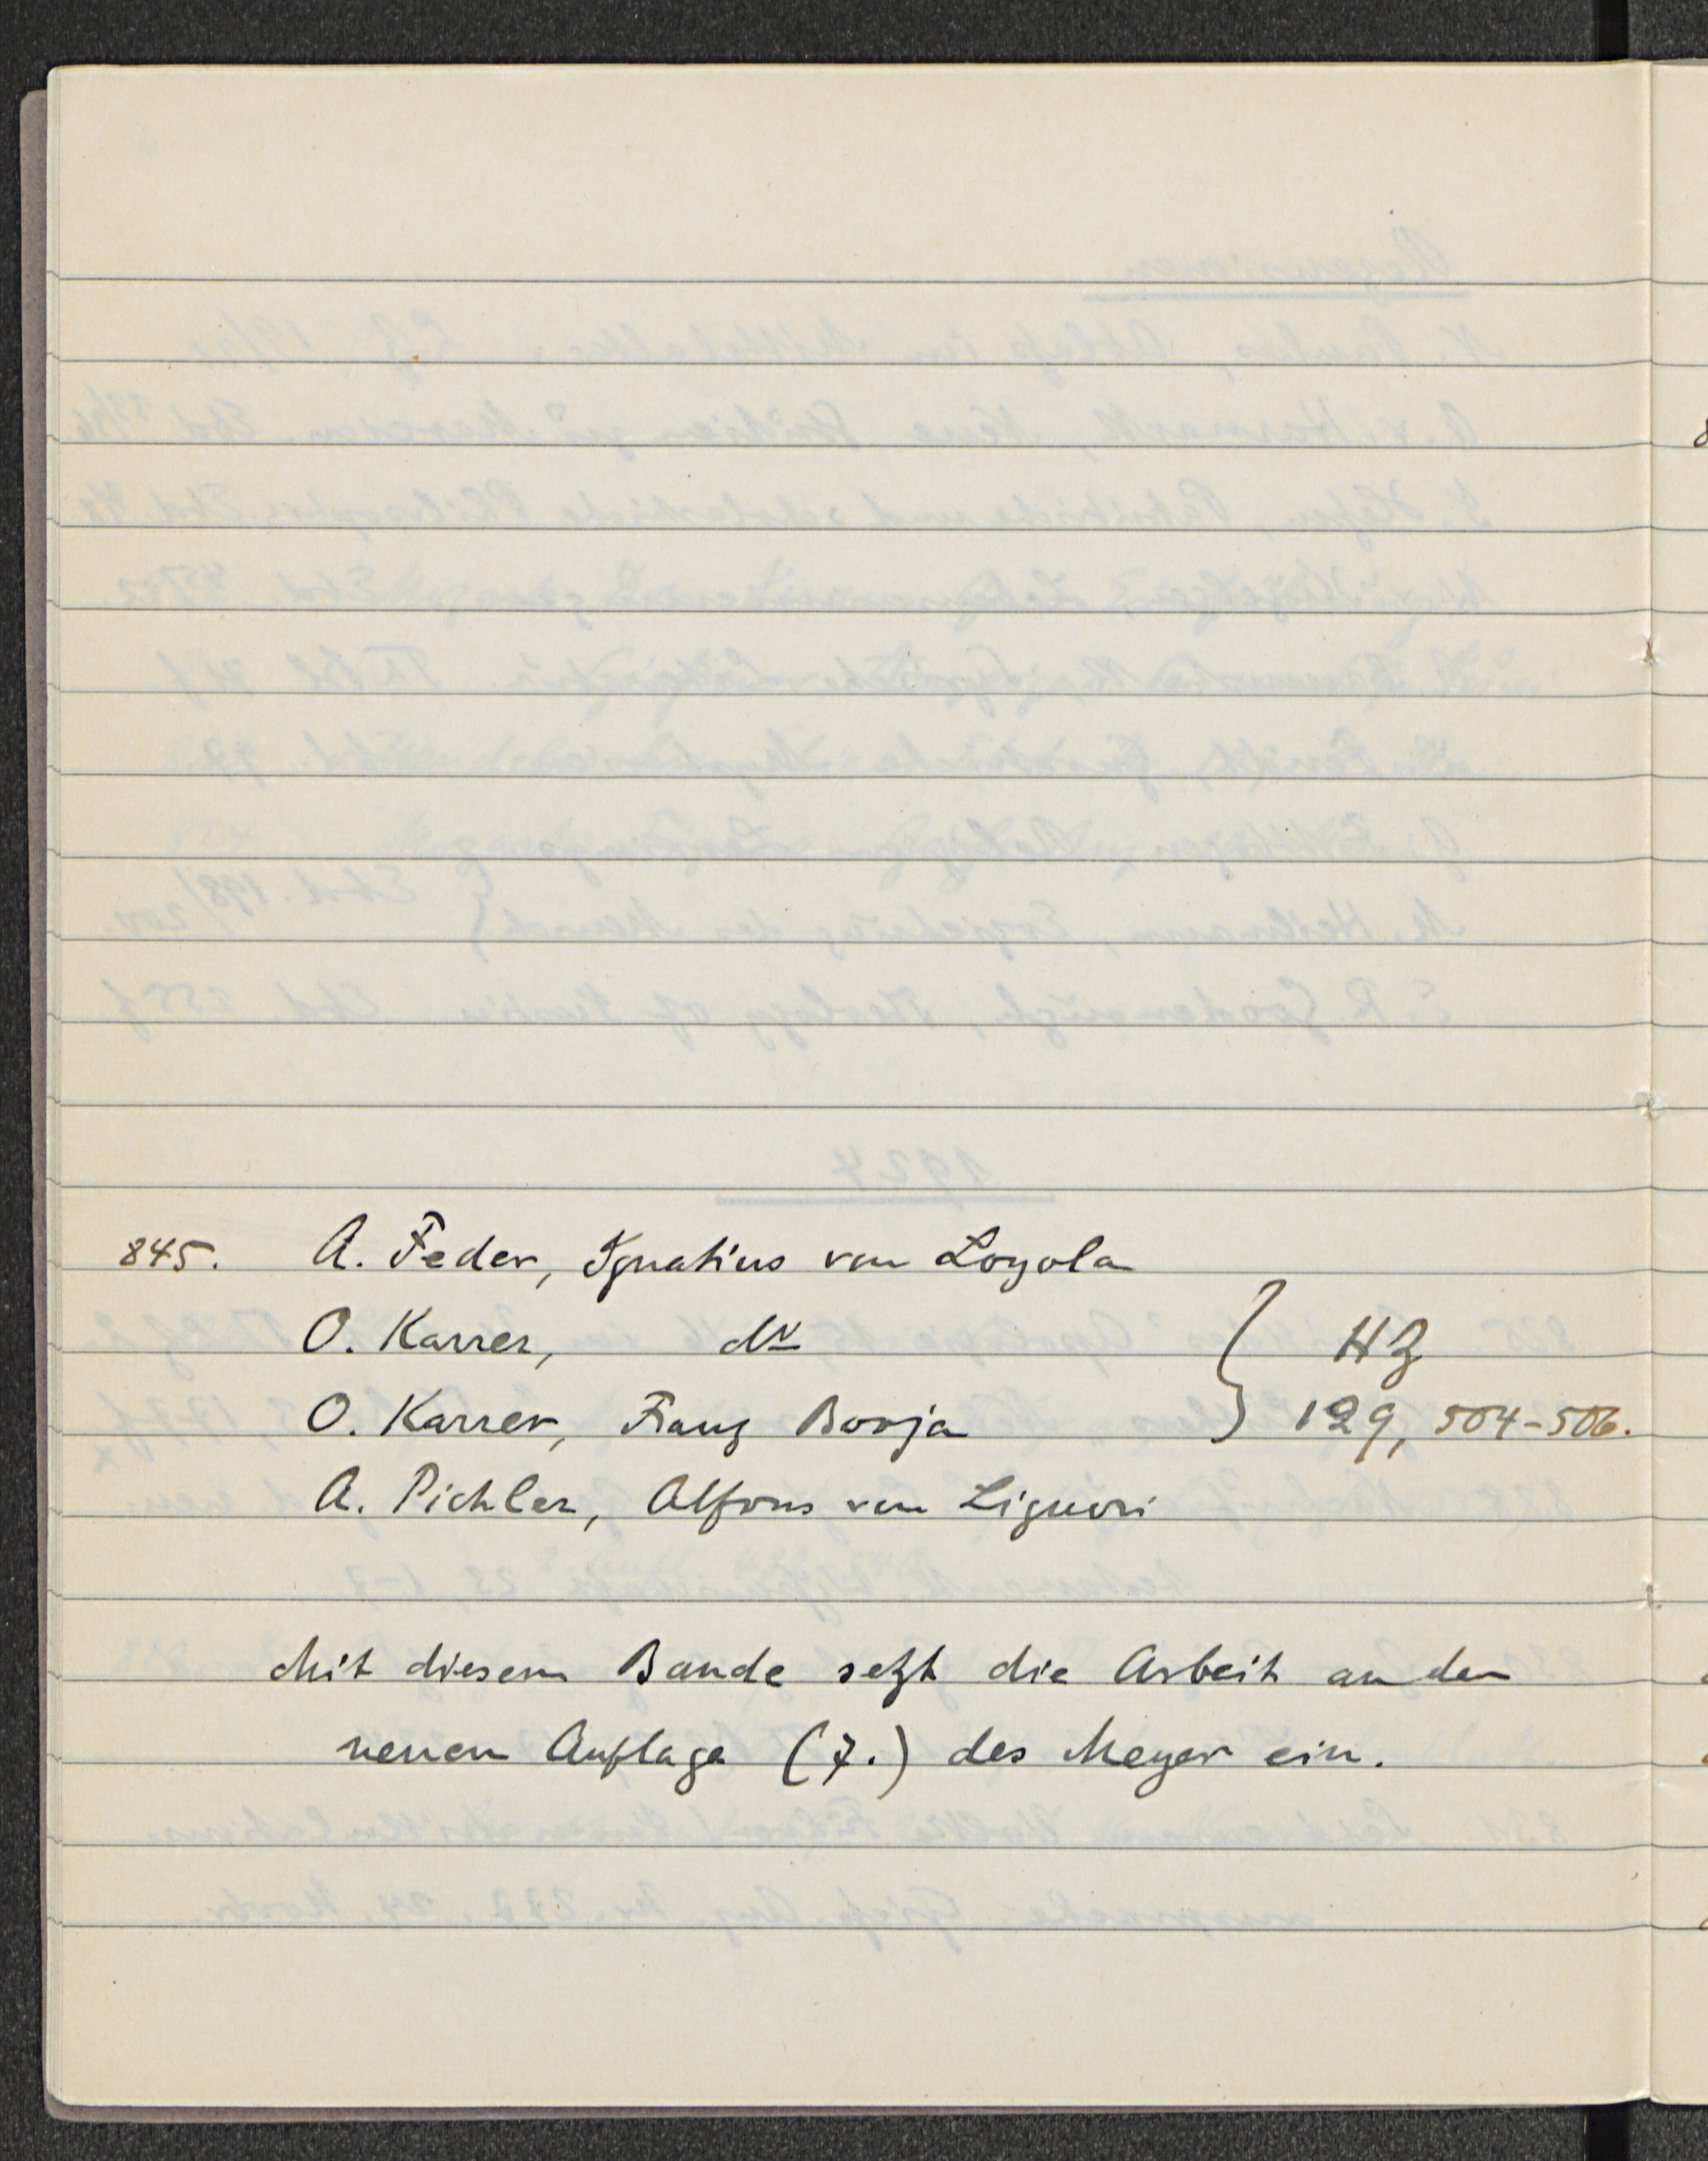 845. A. Feder, Ignatius von Loyola
O. Karrer, do
O. Karrer, Franz Borja } HZ 129, 504-506.
A. Pichler, Alfons von Liguori
Mit diesem Bande setzt die Arbeit an der
neuen Auflage (7.) des Meyer ein.